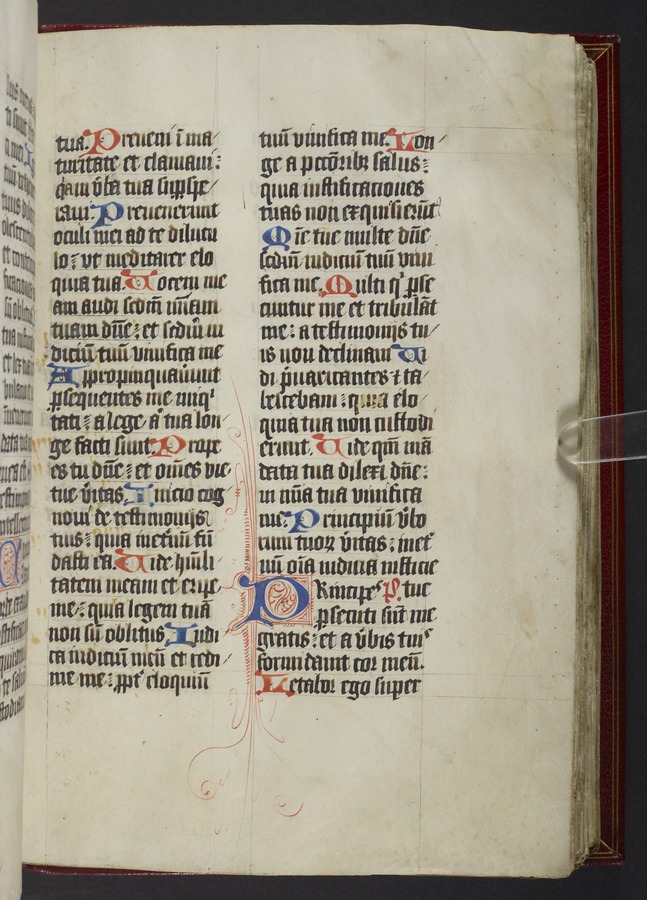 tua. Preueni ī ma
turitate et clamaui:
q̄a in v̄ba tua sup̱spe
raui. Preuenerunt
oculi mei ad te dilucu
lo: vt meditarer elo
quia tua. Uocem me
am audi sc̄dm m̄iam
tuam dn̄e: et sc̄dm iu
diciū tuū viuifica me
Appropinquauerunt
p̱sequentes me iniq'
tati: a lege aū tua lon
ge facti sunt. Prope
es tu dn̄e: et om̄es vie
tue v̄itas. Inicio cog
noui de testimonijs
tuis: quia in et̄nū fū
dasti ea. Uide hūili
tatem meam et eripe
me: quia legem tuā
non sū oblitus. Iudi
ca iudiciū meū et redi
me me: p̱pt' eloquiū
tuū viuifica me. Lon
ge a pcc̄orib; salus:
quia iustificaciones
tuas non exquisierūt
Mie tue multe dn̄e
sc̄dm iudiciū tuū viui
fica me. Multi q̇ p̱se
cuntur me et tribulāt
me: a testimonijs tu
is non declinaui. Ui
di p̄uaricantes ⁊ ta
bescebam: quia elo
quia tua non custodi
erunt. Uide qm̄ mā
data tua dilexi dn̄e:
in mīa tua viuifica
me. Principiū v̄bo
rum tuoꝝ v̄itas: inet'
nū om̄ia iudicia iusticie
PRincipes P. tue
p̱secuti sūt me
gratis: et a v̄bis tuis
formidauit cor meū.
Letabor ego super